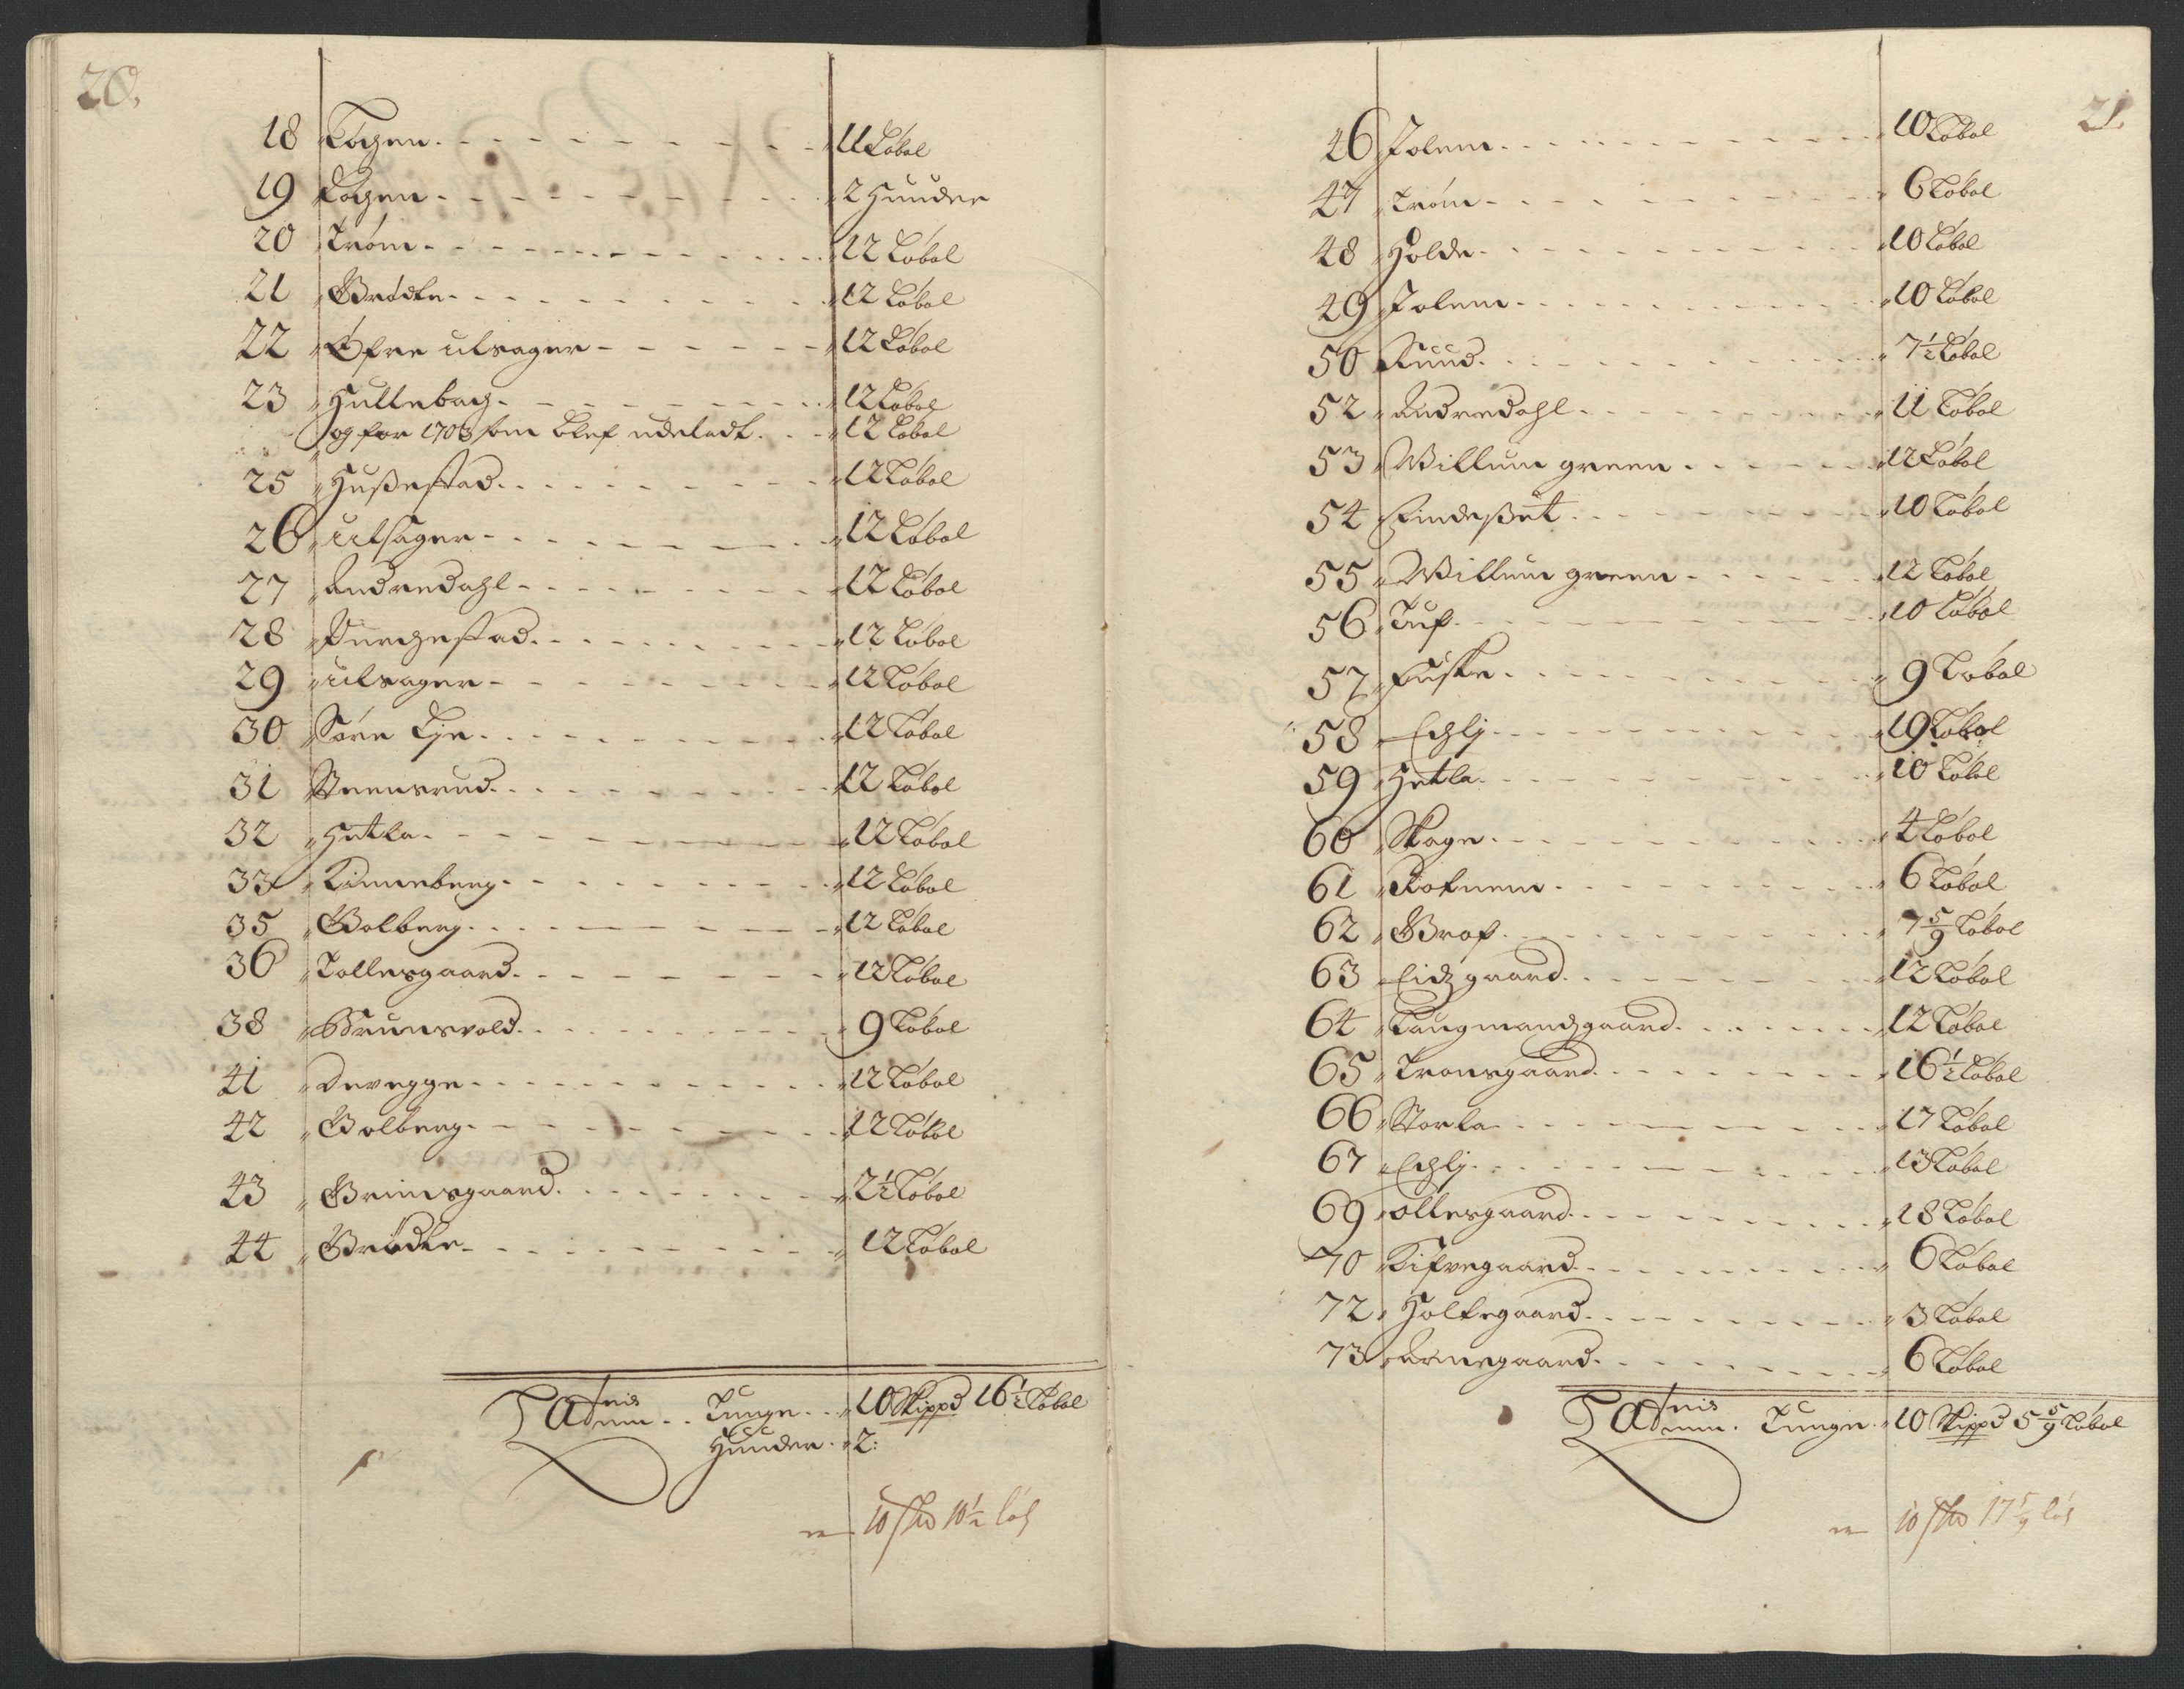 20.
18 Logen 11 Løbol
19 Logen 2 Huuder
20 Trøm 12 Løbol
21 Grødte 12 Løbol
22 Øfre Ulsager 12 Løbol
23 Hullebach 12 Løbol
og for 1703 som blef udeladt 12 Løbol
25 Hußestad 12 Løbol
26 Ulsager 12 Løbol
27 Andredahl 12 Løbol
28 12 Løbol
29 Ulsager 12 Løbol
30 Søre Lje 12 Løbol
31 Steensrud 12 Løbol
32 Hetla 12 Løbol
33 Kinneberg 12 Løbol
35 Golberg 12 Løbol
36 Tollesgaard 12 Løbol
38 Brunsvold 9 Løbol
41 Devegge 12 Løbol
42 Golberg 12 Løbol
43 Grimsgaard 2½ Løbol
44 Grødte 12 Løbol
Latenis Tunge 10 Skippd 16½ Løbol
Huuder 2:
10 10½
21.
46 Jolem 10 Løbol
47 Trøm 6 Løbol
48 Holde 10 Løbol
49 Jolem 10 Løbol
50 Ruud 7½ Løbol
52 Andredahl 11 Løbol
53 Willum green 12 Løbol
54 Eindeßet 10 Løbol
55 Willum green 12 Løbol
56 Tuf 10 Løbol
57 Fuske 9 Løbol
58 Echlj 19 Løbol
59 Hetla 10 Løbol
60 Skage 4 Løbol
61 Rotnem 6 Løbol
62 Graf 7 5/9 Løbol
63 Eidzgaard 12 Løbol
64 Laugmandzgaard 12 Løbol
65 Tronsgaard 16½ Løbol
66 Storla 17 Løbol
67 Echlj 13 Løbol
69 Ollesgaard 18 Løbol
70 Kifvegaard 6 Løbol
72 Holtegaard 3 Løbol
73 Arnegaard 6 Løbol
Latenis Tunge 10 Skippd 5 5/9 Løbol
10 17 5/9